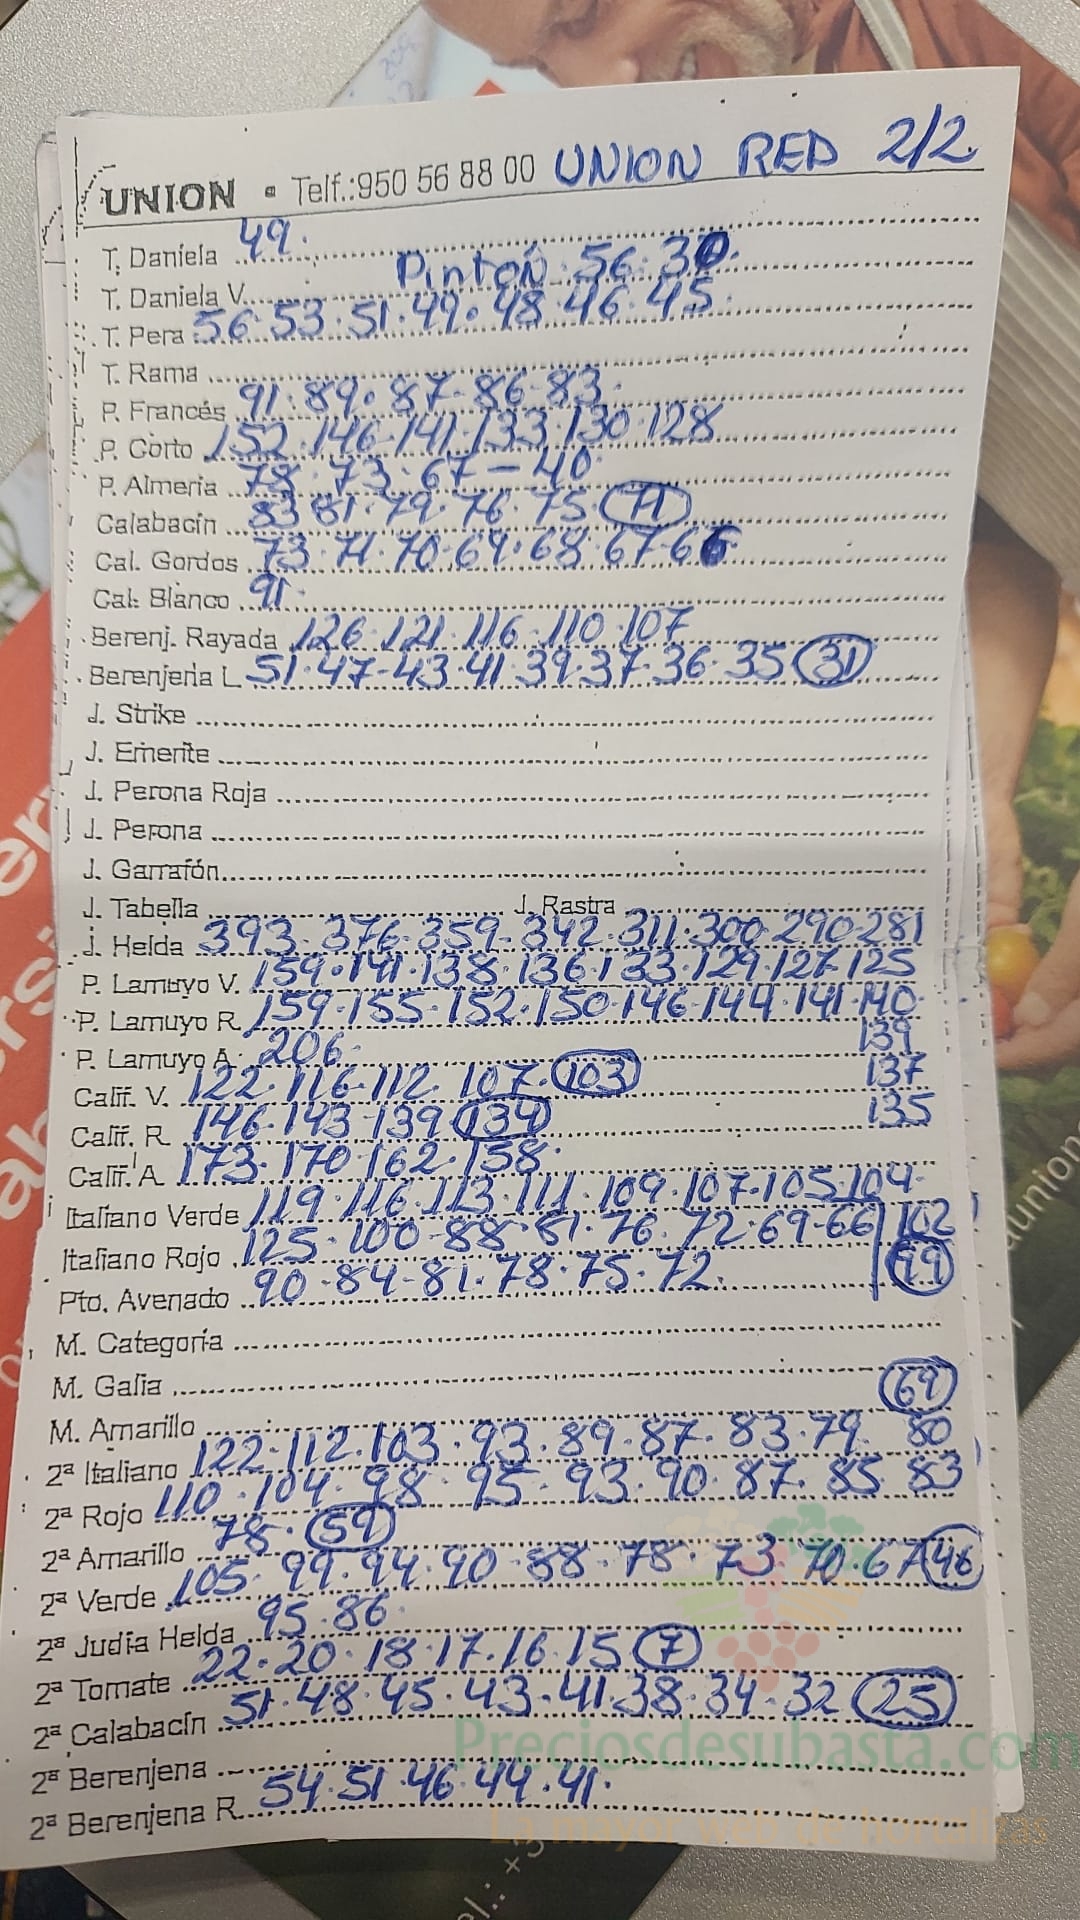 UNION • Telf.:950 56 88 00 UNION RED 2/2.
T. Daniela 49.
T. Daniela V. Pintón. 56. 30.
T. Pera 56. 53. 51. 49. 48. 46. 45.
T. Rama
P. Francés 91. 89. 87. 86. 83.
P. Corto 152. 146. 141. 133. 130. 128
P. Almeria 78. 73. 67 – 40.
Calabacín 83 81. 79. 76. 75 (71)
Cal. Gordos 73. 71. 70. 69. 68. 67. 66
Cal. Blanco 91.
Berenj. Rayada 126. 121. 116. 110. 107
Berenjena L 51. 47. 43. 41. 39. 37. 36. 35 (31)
J. Strike
J. Emerite
J. Perona Roja
J. Perona
J. Garrafón
J. Tabella J. Rastra
J. Helda 393. 376. 359. 342. 311. 300. 290. 281
P. Lamuyo V. 159. 141. 138. 136. 133. 129. 127. 125
P. Lamuyo R. 159. 155. 152. 150. 146. 144. 141. 140.
P. Lamuyo A. 206. 139
Calif. V. 122. 116. 112. 107. (103) 137
Calif. R. 146. 143. 139 (134) 135
Calif. A. 173. 170. 162. 158.
Italiano Verde 119. 116. 113. 111. 109. 107. 105. 104.
Italiano Rojo 125. 100. 88. 81. 76. 72. 69. 66 | 102
Pto. Avenado 90. 84. 81. 78. 75. 72. (99)
M. Categoría
M. Galia (69)
M. Amarillo 80
2ª Italiano 122. 112. 103. 93. 89. 87. 83. 79.
2ª Rojo 110. 104. 98. 95. 93. 90. 87. 85. 83
2ª Amarillo 78. (59)
2ª Verde 105. 99. 94. 90. 88. 78. 73. 70. 67 (46)
2ª Judía Helda 95. 86.
2ª Tomate 22. 20. 18. 17. 16. 15 (7)
2ª Calabacín 51. 48. 45. 43. 41. 38. 34. 32 (25)
2ª Berenjena
2ª Berenjena R. 54. 51. 46. 44. 41.
Preciosdesubasta.com
La mayor web de hortalizas